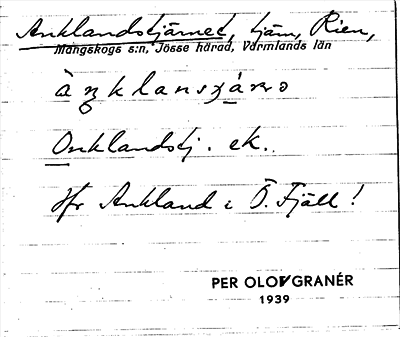 Anklandstjärnet, tjärn, Rien,
Mangskogs s:n, Jösse härad, Värmlands län
Onklandstj. ek.
Jfr Ankland i Ö. Fjäll!
PER OLOF GRANÉR
1939